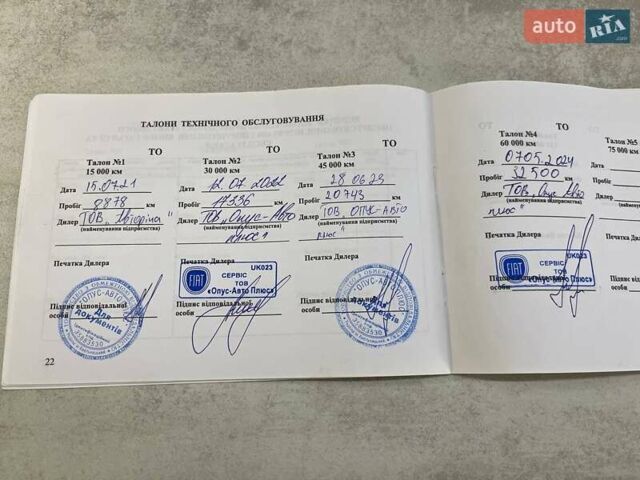 auto RIA .com
ТАЛОНИ ТЕХНІЧНОГО ОБСЛУГОВУВАННЯ
ТО
Талон №1
15 000 км
Дата 15.07.21
Пробіг 8878 км
Дилер ТОВ
(найменування підприємства)
Печатка Дилера
Підпис відповідальної
особи
ОПУС-АВТО
Для
документів
ТО
Талон №2
30 000 км
Дата 12.07.2022
Пробіг 17336 км
Дилер ТОВ „Опус-Авто
(найменування підприємства)
плюс"
Печатка Дилера
UK023
FIAT
СЕРВІС
ТОВ
«Опус-Авто Плюс»
Підпис відповідальної
особи
ТО
Талон №3
45 000 км
Дата 28 06 23
Пробіг 20743 км
Дилер ТОВ „ОПУС-АВТО
(найменування підприємства)
плюс"
Печатка Дилера
Підпис відповідальної
особи
Для
документів
22
ТО
Талон №4
60 000 км
Дата 07.05.2024
Пробіг 32 500 км
Дилер ТОВ „Опус Авто
(найменування підприємства)
плюс"
Печатка Дилера
UK023
FIAT
СЕРВІС
ТОВ
«Опус-Авто Плюс»
Підпис відповідальної
особи
Талон №5
75 000
Дата
Пробіг
Дилер